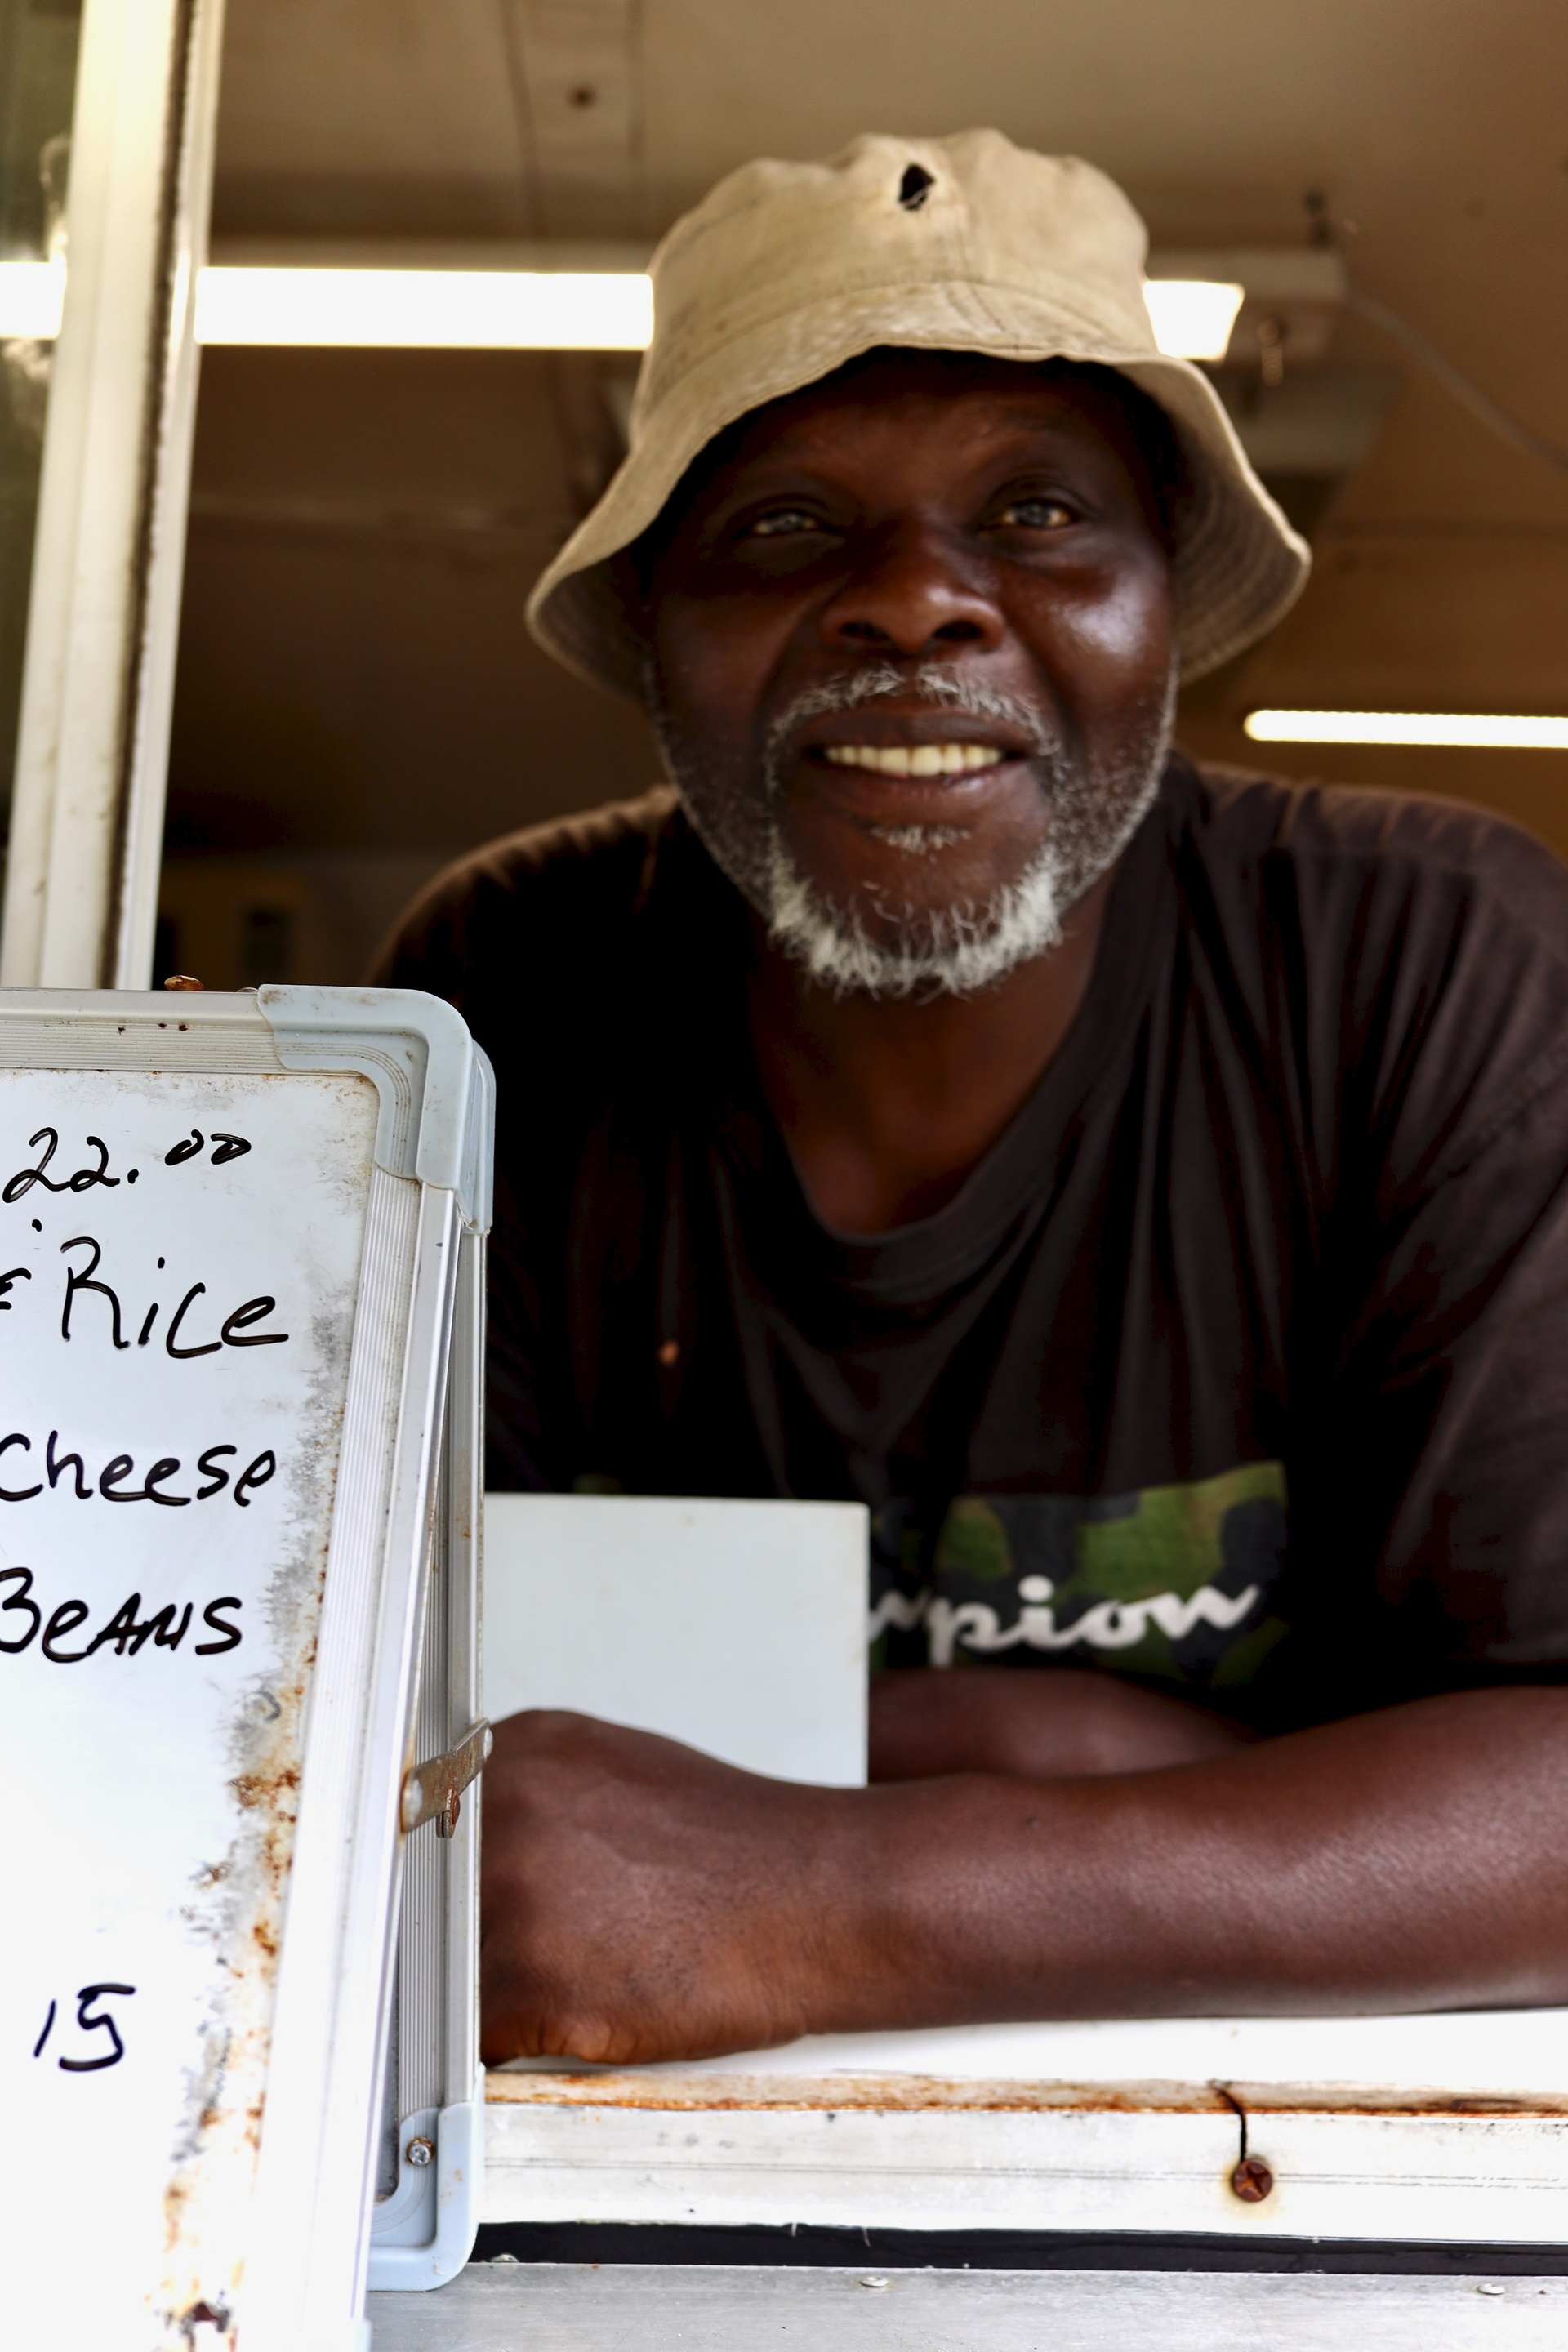 22.00
Rice
Cheese
Beans
15
pion